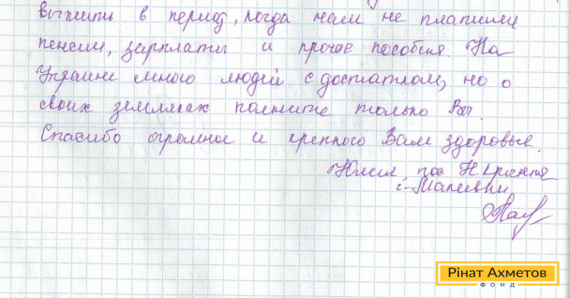 выжить в период, когда нам не платили
пенсии, зарплаты и прочие пособия На
Украине много людей с достатком, но о
своих земляках помните только Вы.
Спасибо огромное и крепкого Вам здоровья.
Юлия, пос Н Крынка
г. Макеевки
Рінат Ахметов
ФОНД